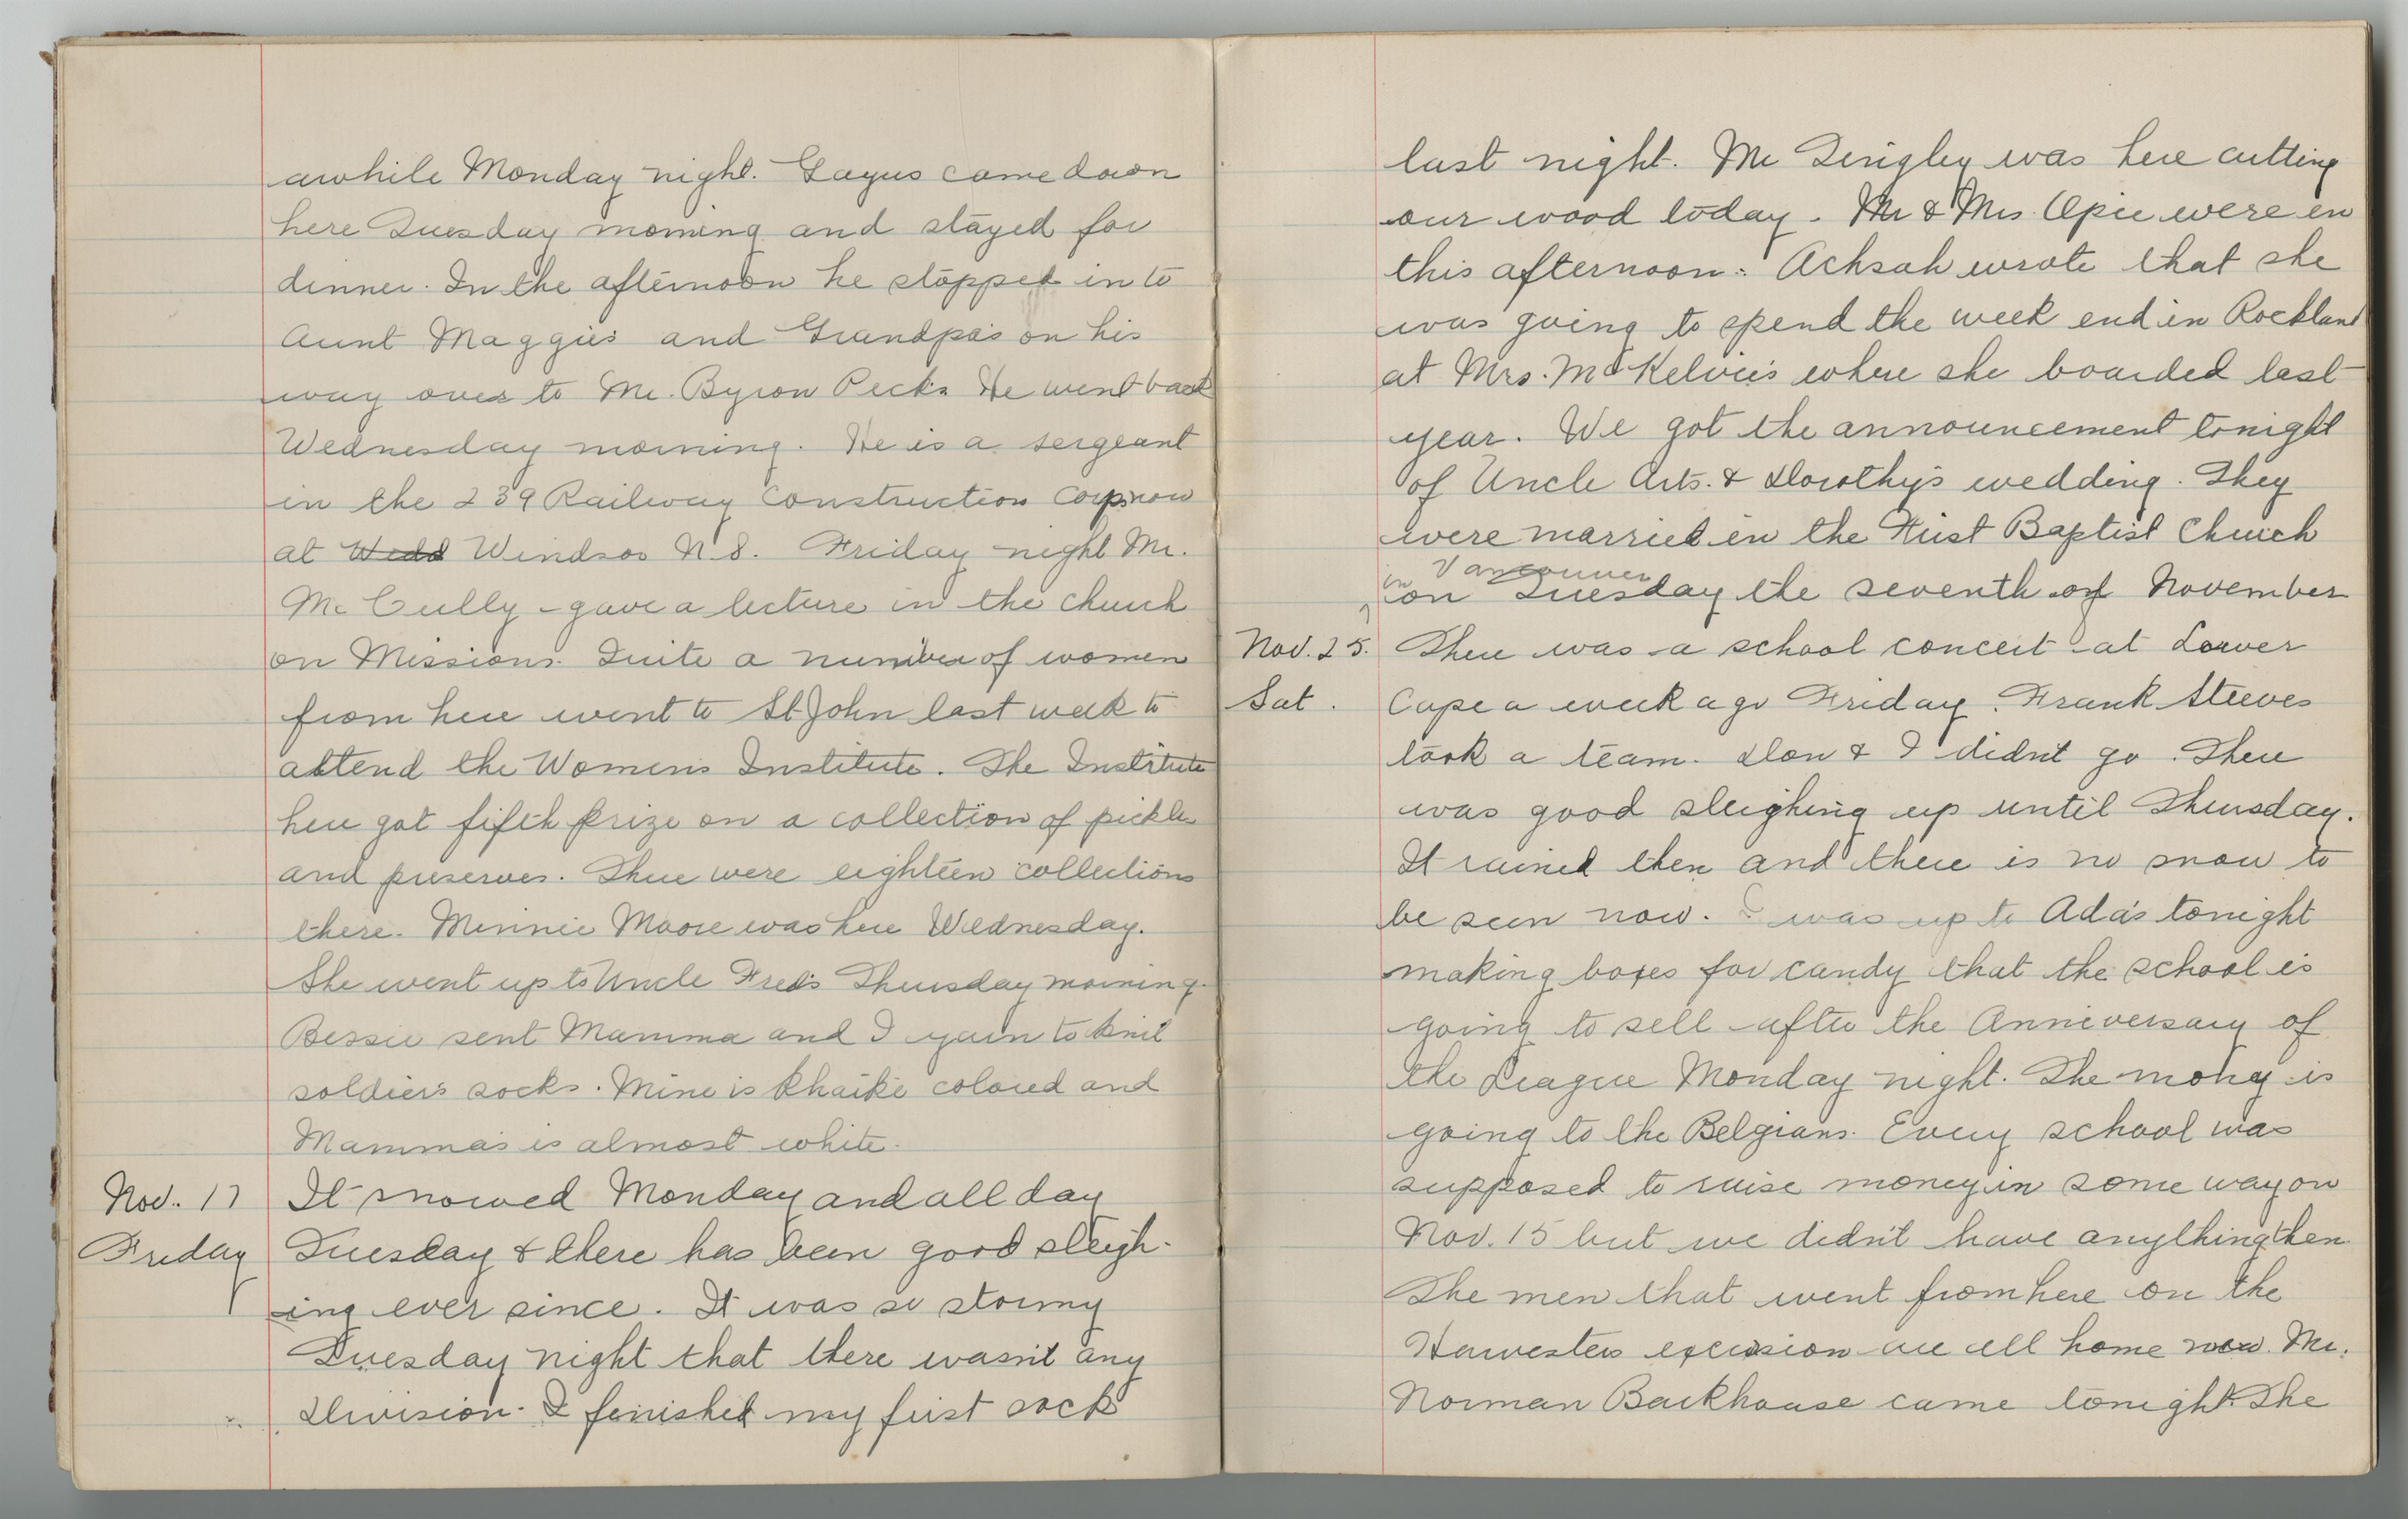 awhile Monday night. Gagus came down
here Tuesday morning and stayed for
dinner. In the afternoon he stopped in to
Aunt Maggie's and Grandpa's on his
way over to Mr. Byron Peck's He went back
Wednesday morning. He is a sergeant
in the 239 Railway Construction Corps now
at Wedd Windsor N.S. Friday night Mr.
McCully gave a lecture in the church
on Missions. Quite a number of women
from here went to St John last week to
attend the Women's Institute. The Institute
here got fifth prize on a collection of pickles
and preserves. There were eighteen collections
there. Minnie Moore was here Wednesday.
She went up to Uncle Fred's Thursday morning.
Bessie sent Mamma and I yarn to knit
soldier's socks. Mine is khaike colored and
Mamma's is almost white.
Nov. 17 It snowed Monday and all day
Friday Tuesday & there has been good sleigh-
ing ever since. It was so stormy
Tuesday night that there wasn't any
Division. I finished my first sock
last night. Mr Tingley was here cutting
our wood today. Mr & Mrs. Opie were in
this afternoon. Achsah wrote that she
was going to spend the week end in Rockland
at Mrs. McKelvie's where she boarded last
year. We got the announcement tonight
of Uncle Art's. & Dorothy's wedding. They
were married in the First Baptist Church
in Vancouver
on Tuesday the seventh of November
Nov. 25. There was a school concert at Lower
Sat. Cape a week ago Friday. Frank Steeves
took a team. Don & I didn't go. There
was good sleighing up until Thursday.
It rained then and there is no snow to
be seen now. I was up to Ada's tonight
making boxes for candy that the school is
going to sell after the Anniversary of
the League Monday night. The mony is
going to the Belgians. Every school was
supposed to raise money in some way on
Nov. 15 but we didn't have anything then.
The men that went from here on the
Harvesters excursion are all home now. Mr.
Norman Barkhouse came tonight. The